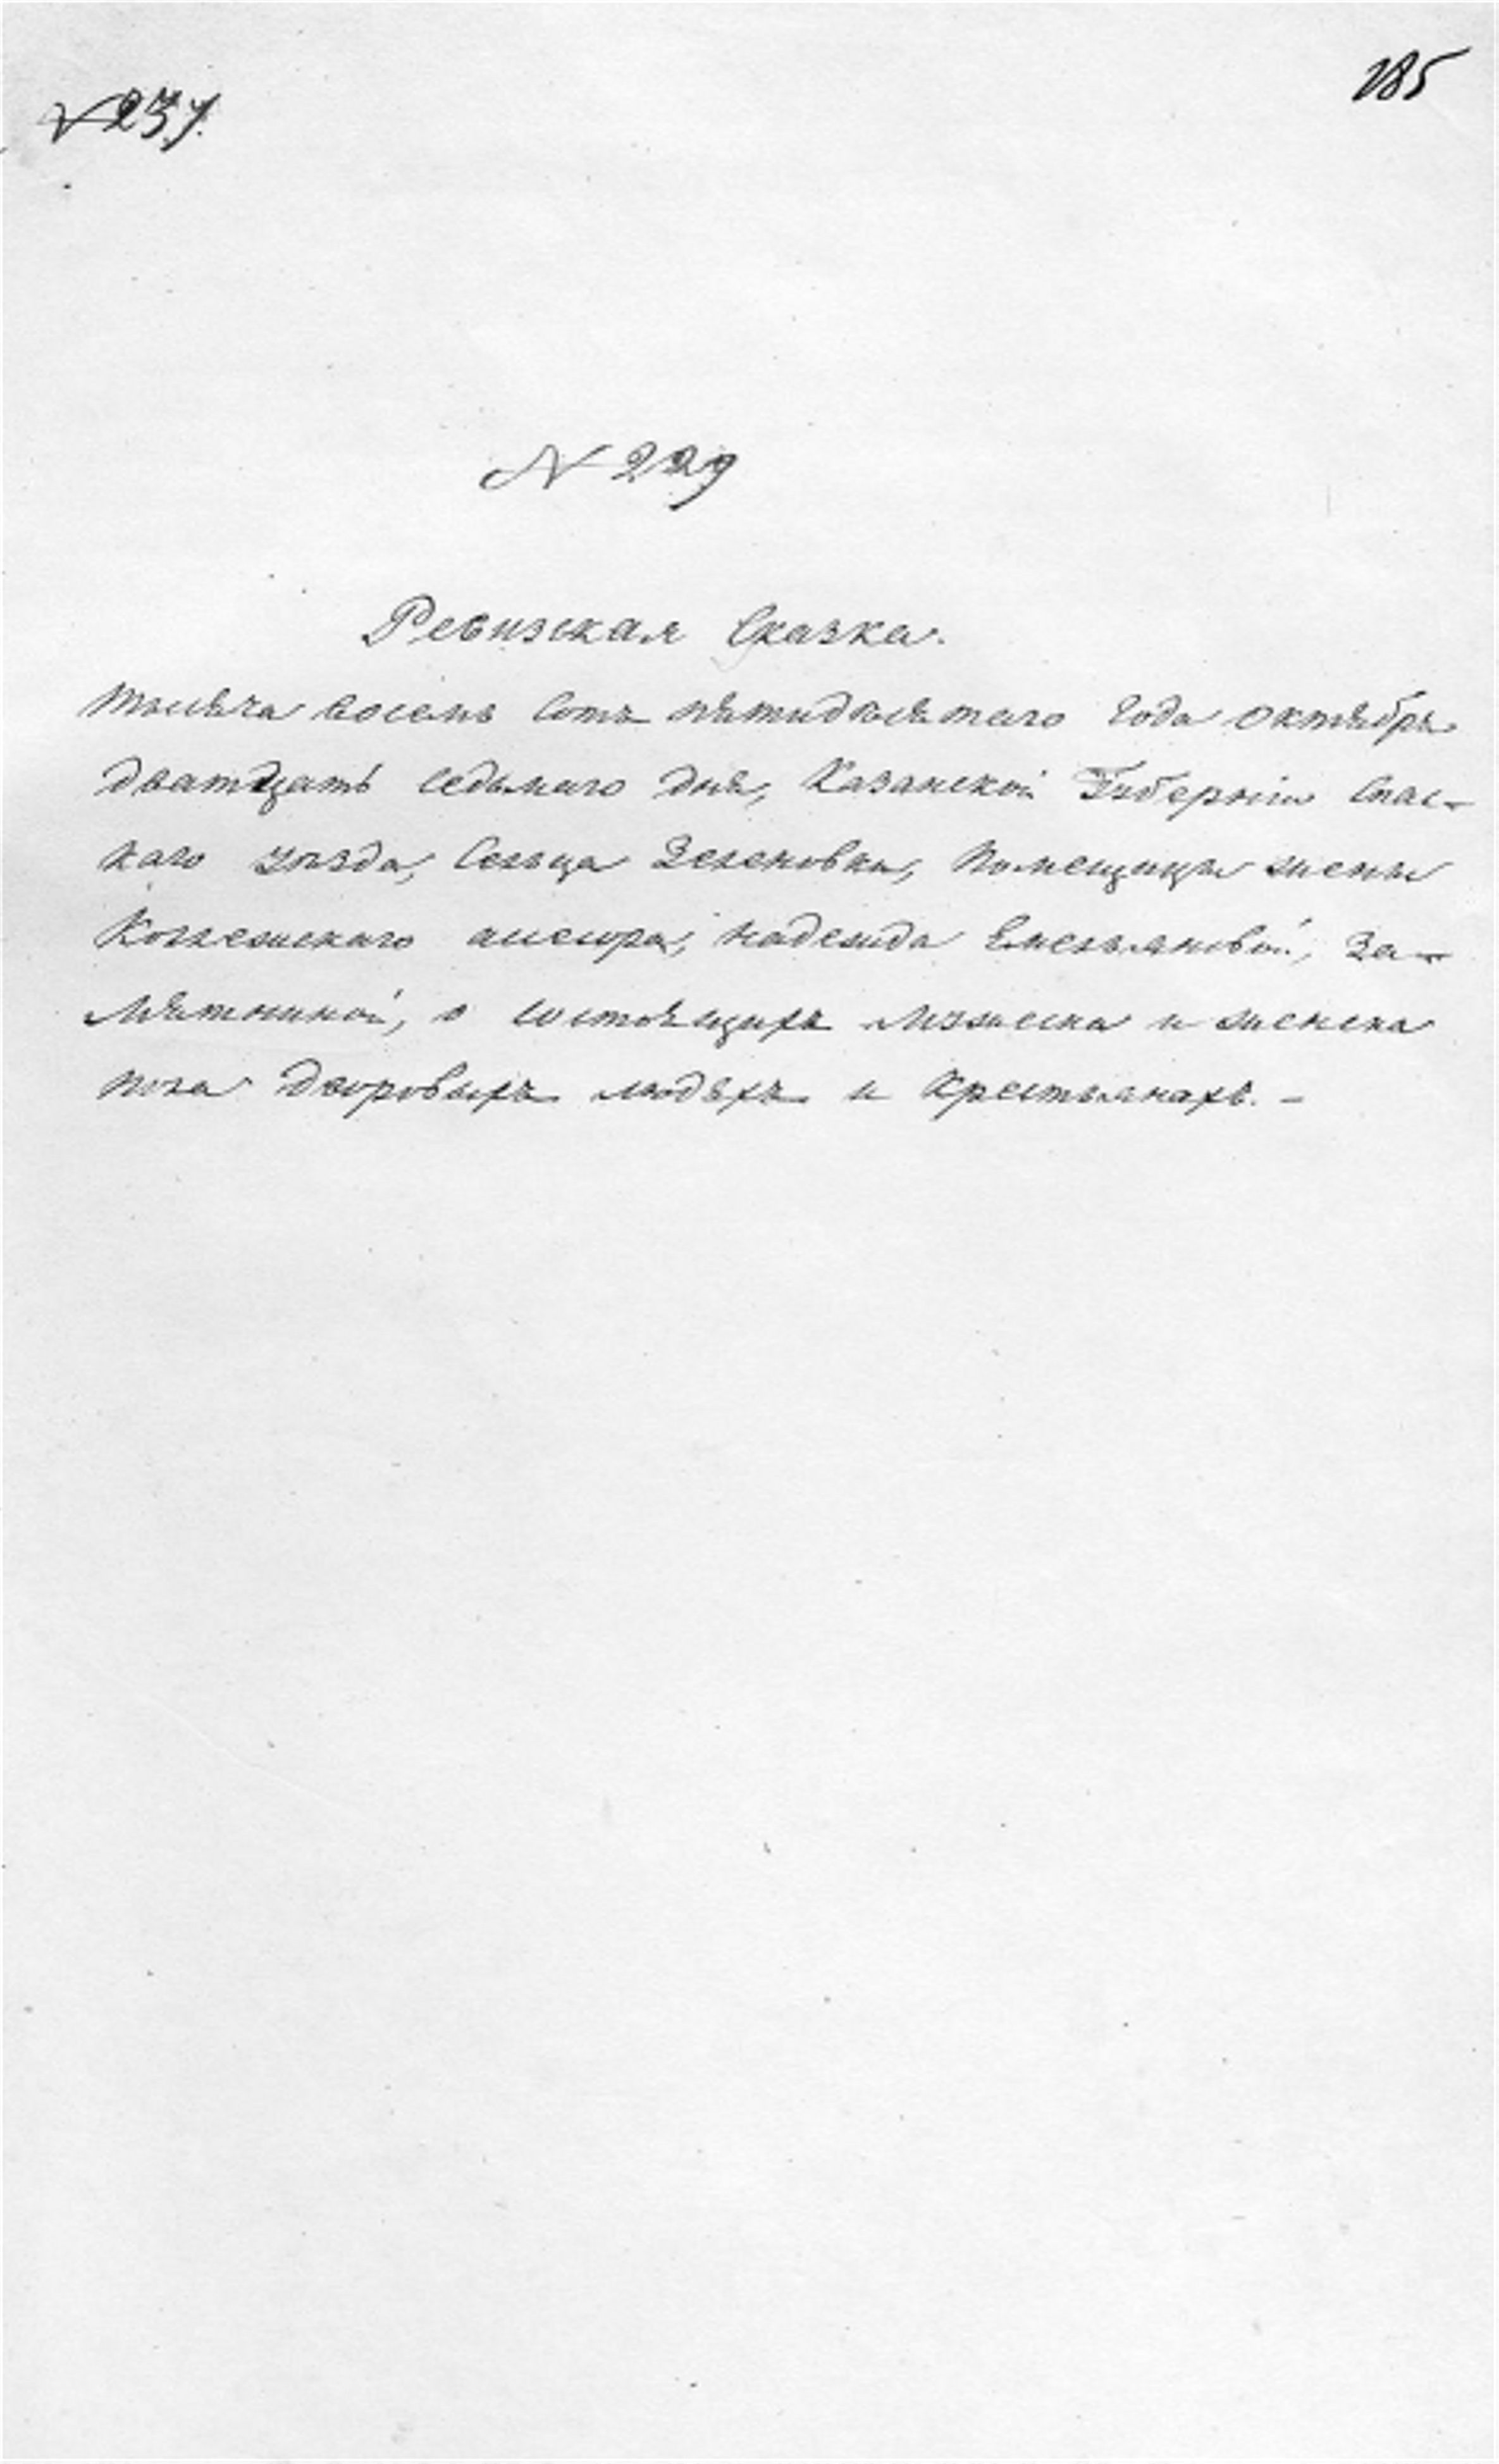 № 237.
185
N 229
Ревизская Сказка.
Тысяча восемь сотъ пятидесятаго года октября
дватцать седьмаго дня, Казанской Губерніи Спас-
каго уѣзда, Сельца Зеленовки, Помещицы жены
Коллежскаго ассесора, Надежда Емельяновой, За-
мятниной, о состоящихъ мужеска и женска
пола дворовыхъ людяхъ и крестьянахъ. -